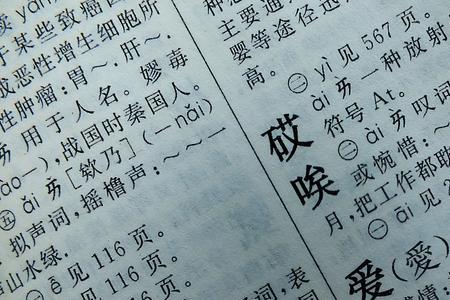 于某些致癌
或恶性增生细胞所
性肿瘤：胃～.肝～.
用于人名。嫪毐
ào一)，战国时秦国人。
㊄ ǎi ㄞ [欸乃] (一nǎi)
拟声词，摇橹声：～～一
山水绿.
㊀ ê̄ 见 116 页。
见 116 页。
116 页。
主要通
婴等途径远
高。
㊀ yì 见 567 页。
砹 ài ㄞ 一种放射
符号 At。
唉 ㊀ ài ㄞ 叹词
或惋惜：～
月,把工作都耽
㊀ āi 见 2
爱(愛)